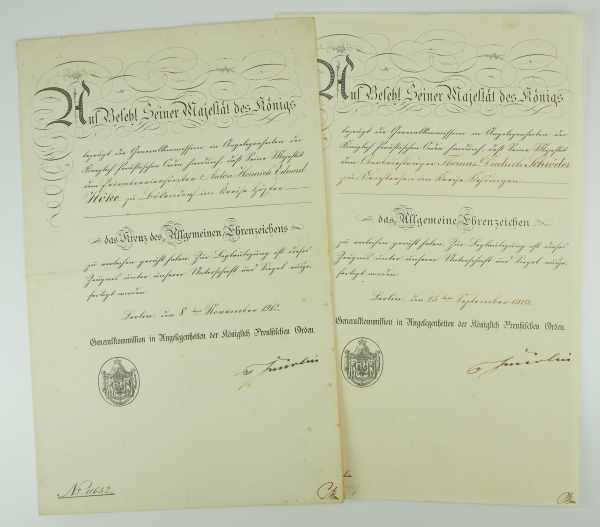 Auf Befehl Seiner Majestät des Königs
bezeugt die Generalkommission in Angelegenheiten der
Königlich Preußischen Orden hierdurch, daß Seine Majestät
dem Anton Heinrich Eduard
Höke zu im Kreise Höxter
das Kreuz des Allgemeinen Ehrenzeichens
zu verleihen geruht haben. Zur Beglaubigung ist dieses
Zeugnis unter unserer Unterschrift und Siegel ausge-
fertigt worden.
Berlin, den 8ten November 1912.
Generalkommission in Angelegenheiten der Königlich Preußischen Orden.
Nr. 11632.
Auf Befehl Seiner Majestät des Königs
bezeugt die Generalkommission in Angelegenheiten der
Königlich Preußischen Orden hierdurch, daß Seine Majestät
dem Diedrich Schröder
zu im Kreise
das Allgemeine Ehrenzeichen
zu verleihen geruht haben. Zur Beglaubigung ist dieses
Zeugnis unter unserer Unterschrift und Siegel ausge-
fertigt worden.
Berlin, den 15ten September 1910.
Generalkommission in Angelegenheiten der Königlich Preußischen Orden.